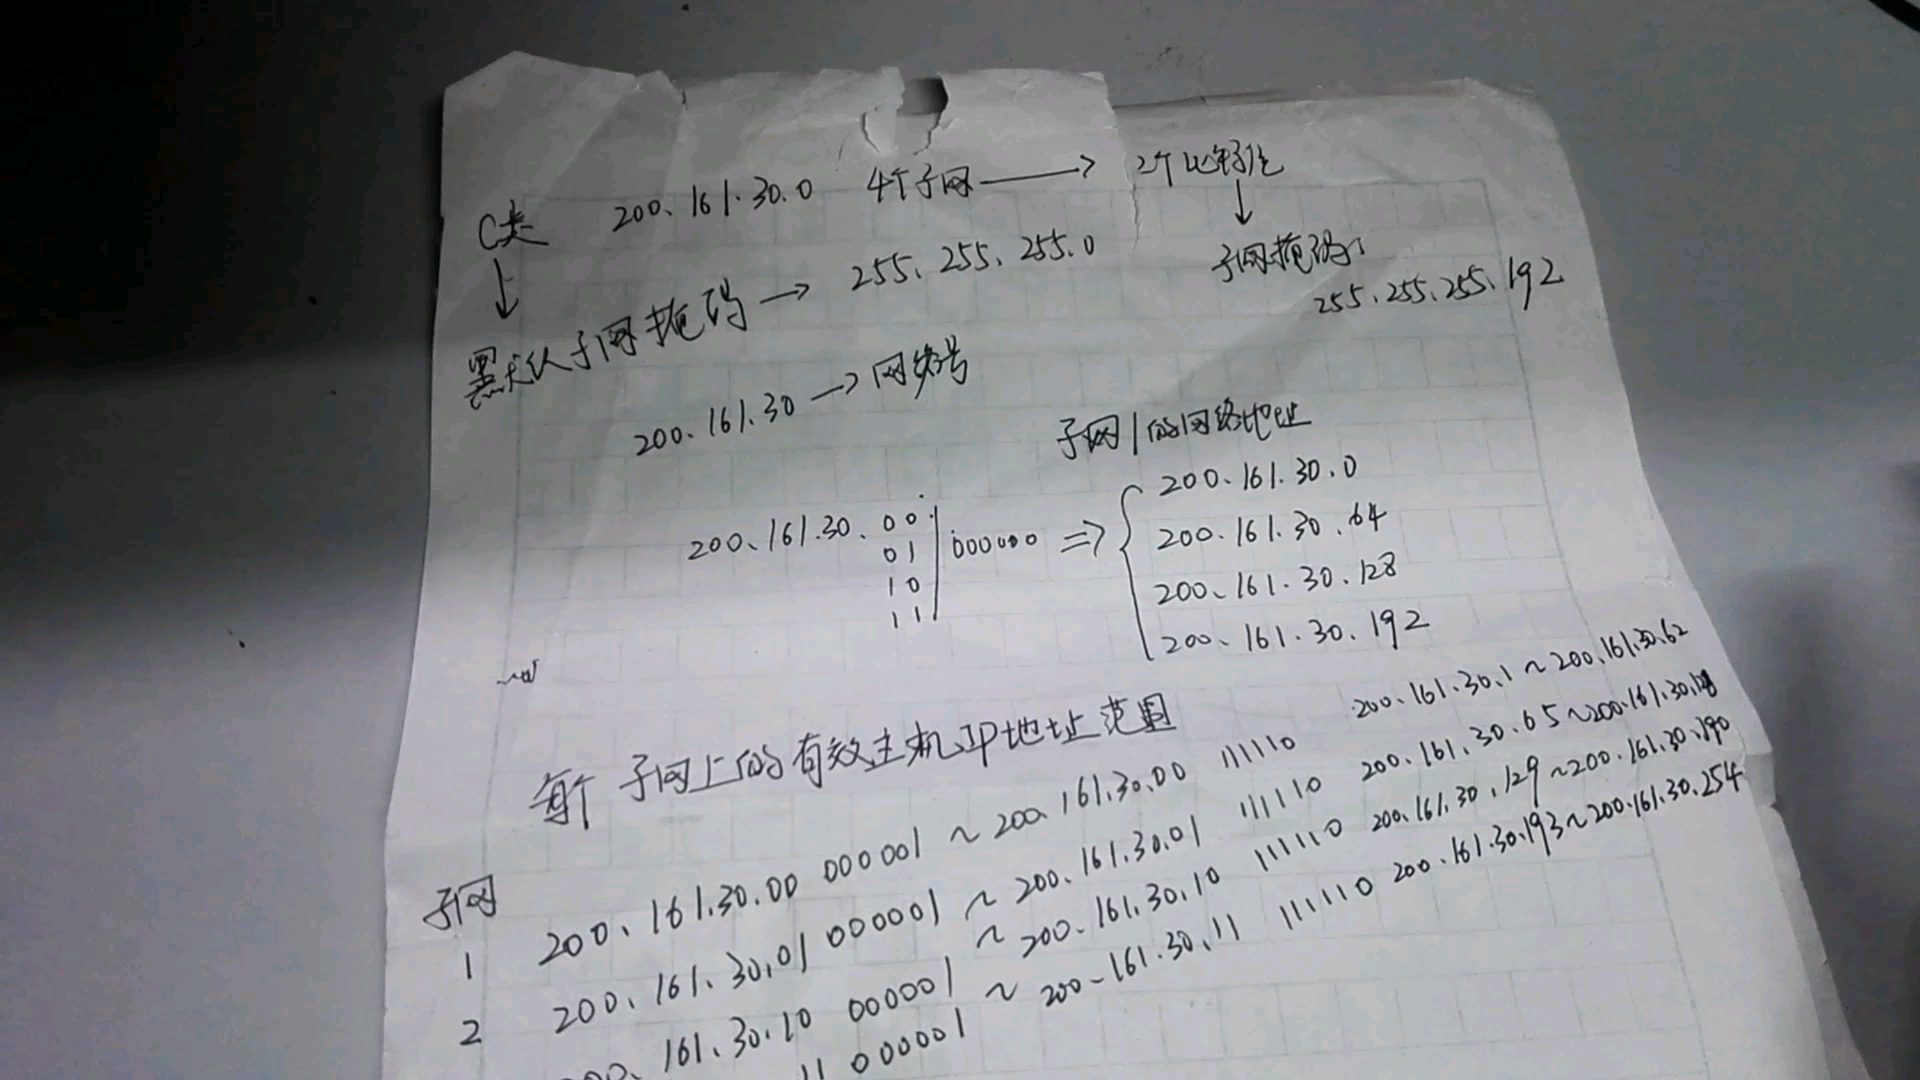 C类 200.161.30.0 4个子网 → 2个比特位
↓ ↓
默认子网掩码 → 255.255.255.0 子网掩码:
255.255.255.192
200.161.30 → 网络号
子网1的网络地址
200.161.30.00 000000 ⇒ 200.161.30.0
01 200.161.30.64
10 200.161.30.128
11 200.161.30.192
每个子网上的有效主机IP地址范围
子网
1 200.161.30.00 000001 ~ 200.161.30.00 111110 200.161.30.1 ~ 200.161.30.62
2 200.161.30.01 000001 ~ 200.161.30.01 111110 200.161.30.65 ~
161.30.10 000001 ~ 200.161.30.10 111110 200.161.30.129 ~ 200.161.30.190
11 000001 ~ 200-161.30.11 111110 200.161.30.193 ~ 200.161.30.254